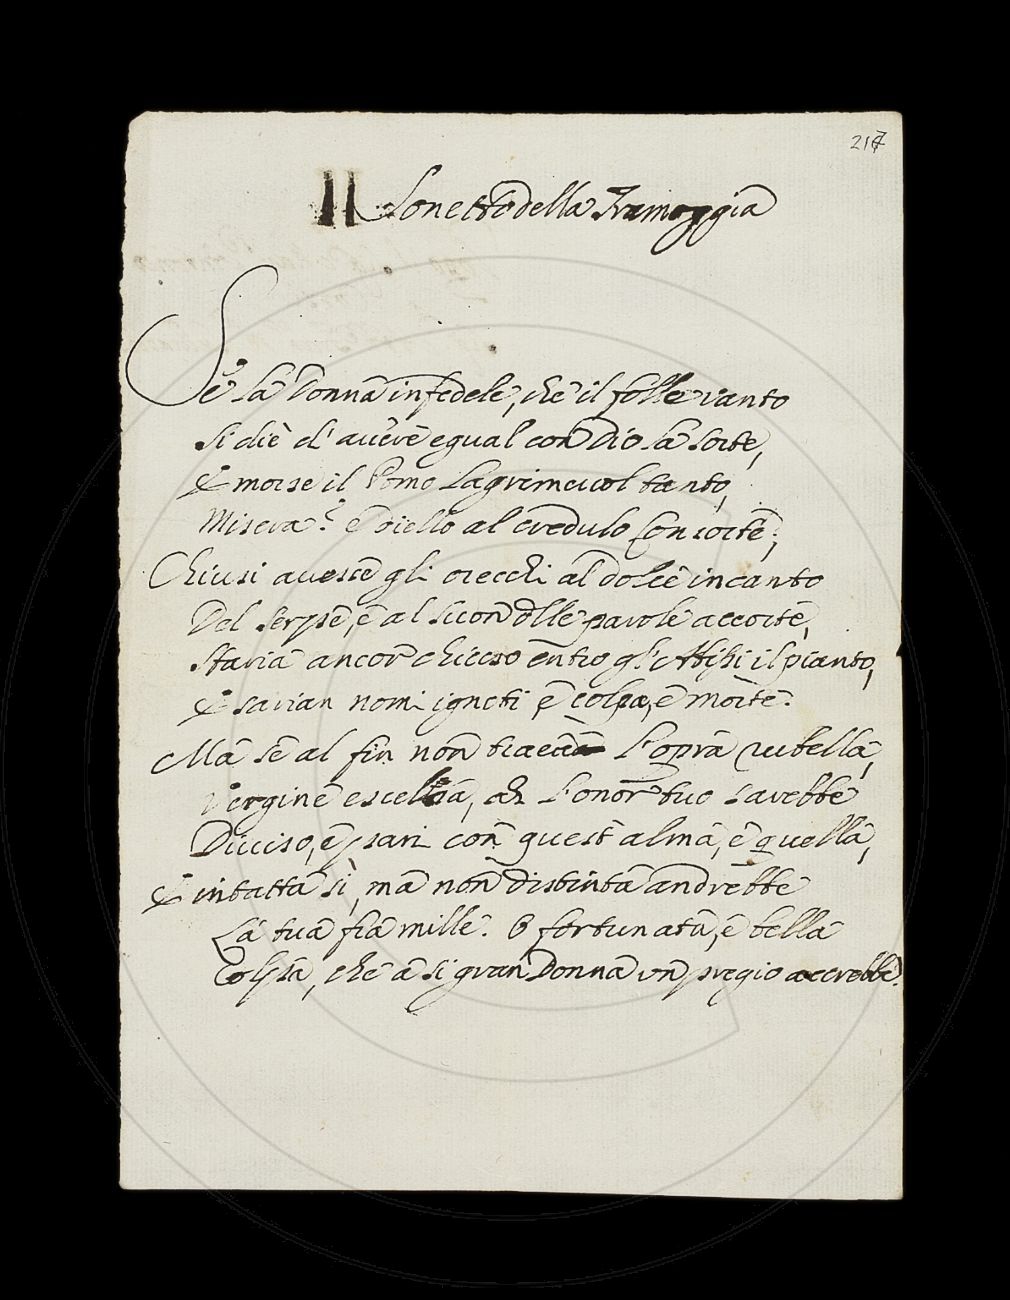 217
II Sonetto della Tramoggia
Se la Donna infedele, che il folle vanto
Si diè d'avere egual con Dio la sorte,
E morse il Pomo lagrimevol tanto,
Misera! e dièllo al credulo Consorte;
Chiusi avesse gli orecchi al dolce incanto
Del Serpe, e al suon delle parole accorte,
Staria ancor chiuso entro gl'Abissi il pianto,
E sarian nomi ignoti, e colpa, e morte.
Mà se al fin non traeva l'opra rubella,
Vergine eccelsa, ah l'onor tuo sarebbe
Diviso, e pari con quest'alma, e quella,
E intatta sì, ma non distinta andrebbe
La tua fra mille. O fortunata, e bella
Colpa, che a sì gran Donna un pregio accrebbe.